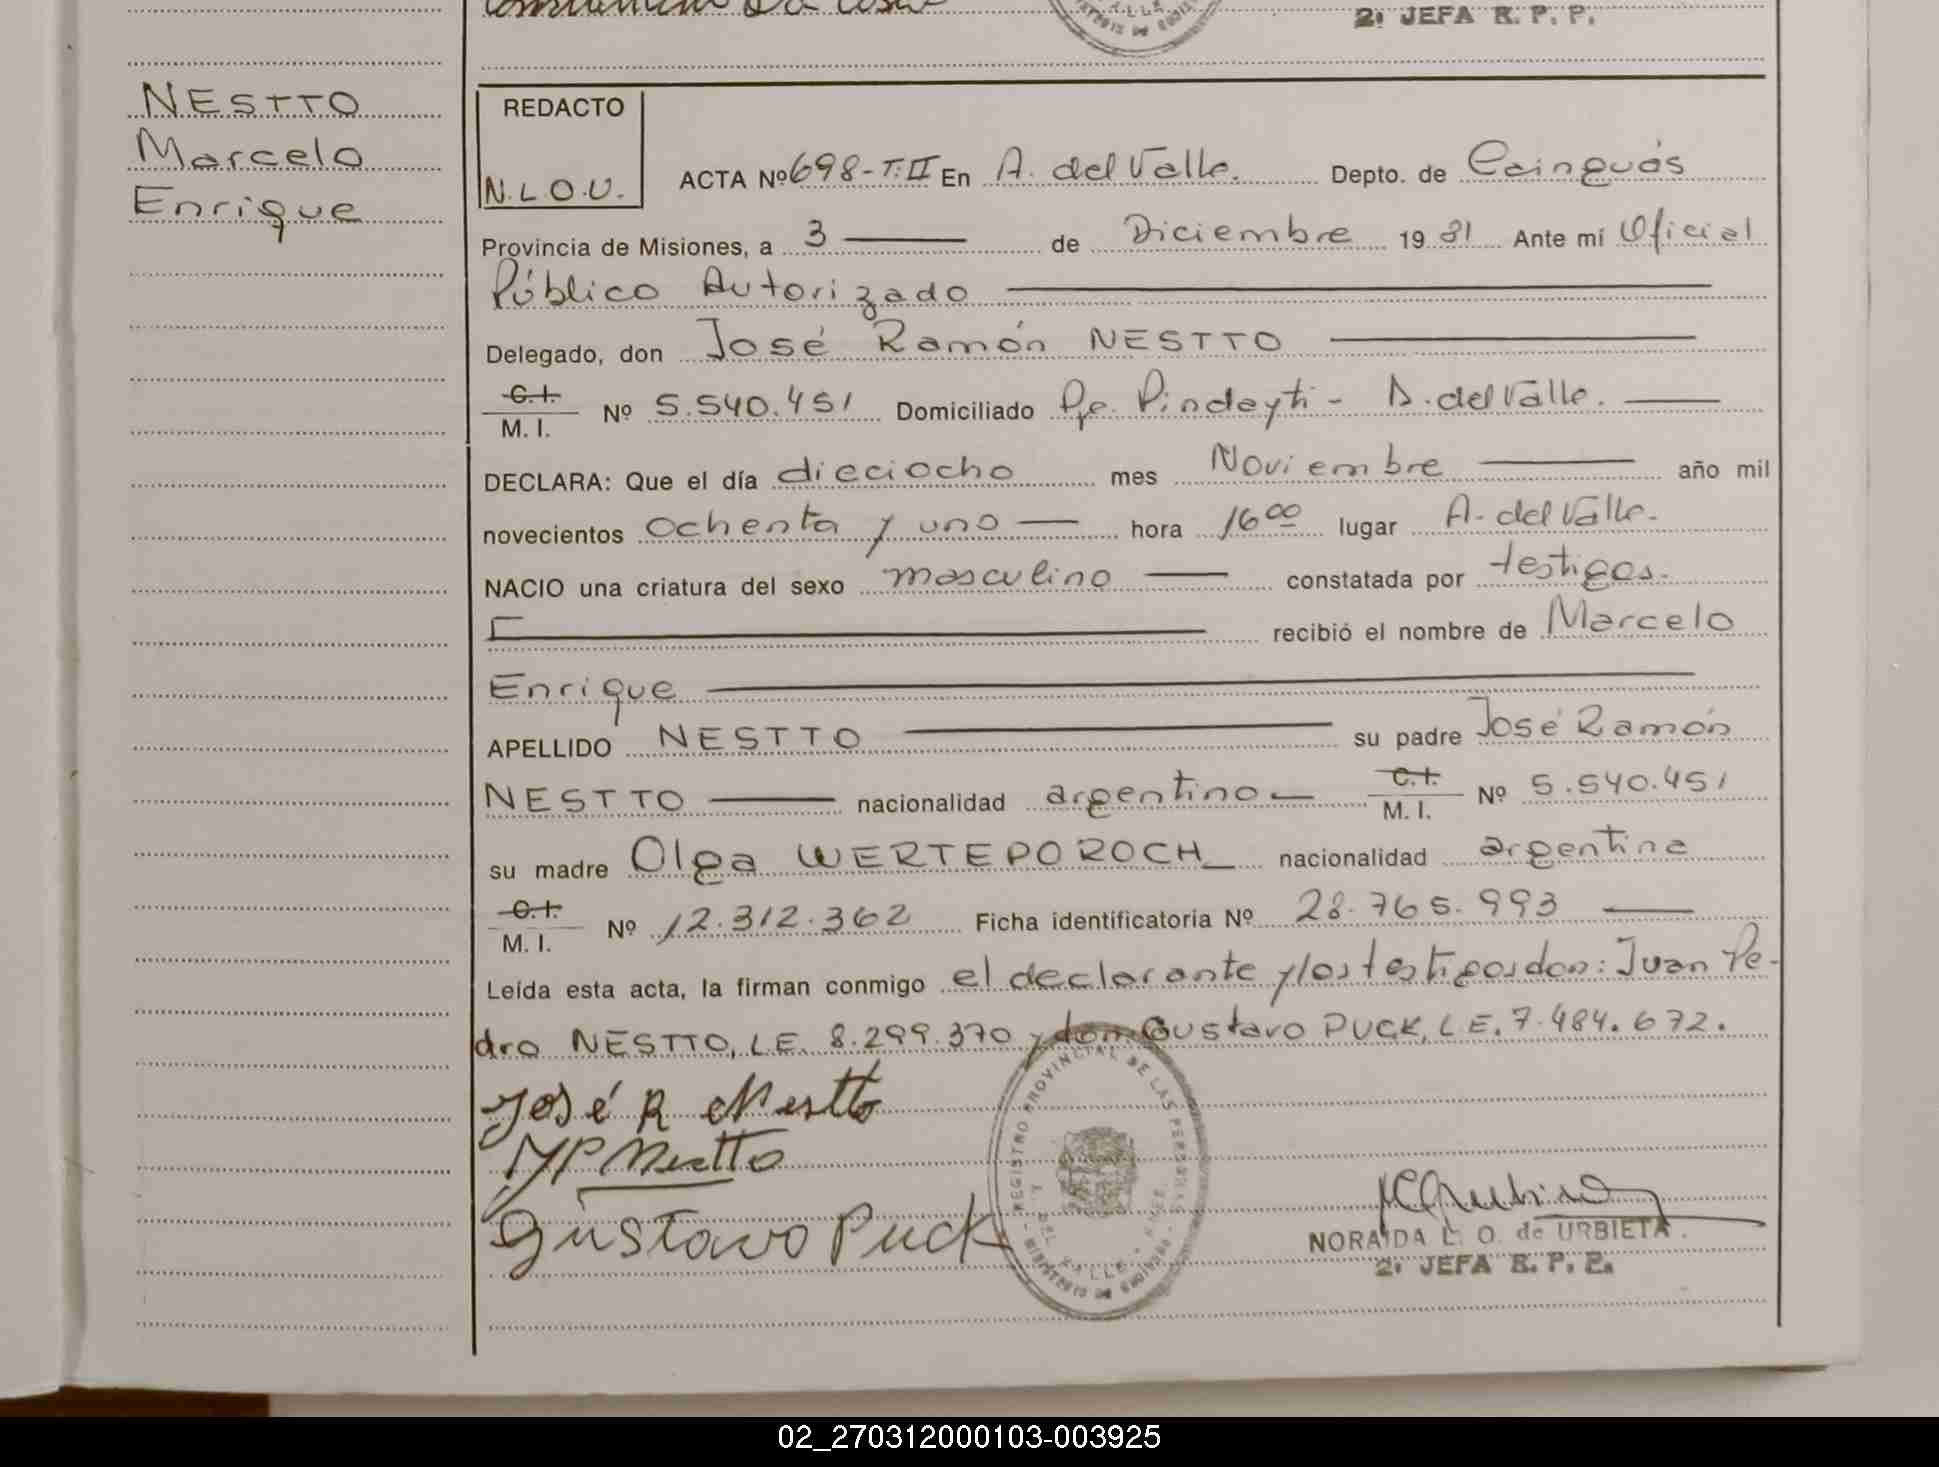 2ª JEFA R. P. P.
NESTTO
Marcelo
Enrique
REDACTO
N.L.O.U.
ACTA Nº 698-T:II En A. del Valle. Depto. de Cainguás
Provincia de Misiones, a 3 de Diciembre 19 81 Ante mí Oficial
Público Autorizado
Delegado, don José Ramón NESTTO
C.I. / M. I. Nº 5.540.451 Domiciliado Pje. Pindayti - A. del Valle.
DECLARA: Que el día dieciocho mes Noviembre año mil
novecientos ochenta y uno hora 16 00 lugar A. del Valle.
NACIO una criatura del sexo masculino constatada por testigos.
recibió el nombre de Marcelo
Enrique
APELLIDO NESTTO su padre José Ramón
NESTTO nacionalidad argentino C.I. / M. I. Nº 5.540.451
su madre Olga WERTEPOROCH nacionalidad argentina
C.I. / M. I. Nº 12.312.362 Ficha identificatoria Nº 28.765.993
Leída esta acta, la firman conmigo el declarante y los testigos don: Juan Pe-
dro NESTTO, L.E. 8.299.370 y don Gustavo PUCK, L.E. 7.484.672.
José R Nestto
JP Nestto
Gustavo Puck
REGISTRO PROVINCIAL DE LAS PERSONAS
NORAIDA L. O. de URBIETA
2ª JEFA R. P. P.
02_270312000103-003925